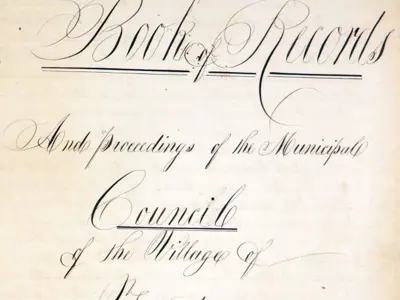 Book of Records
And proceedings of the Municipal
Council
of the Village of